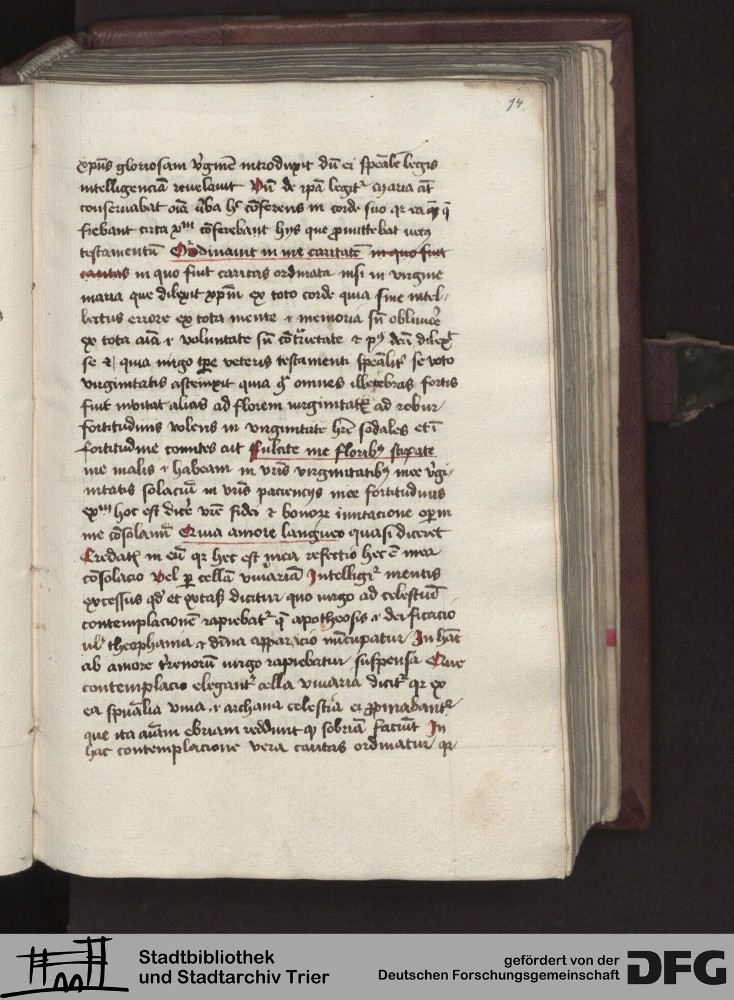 14.
xpūs gloriosam v̓ginē introduxit dū ei sp̄eālē legis
intelligenciā revelavit Vn̄ de ip̄a legit᷑ maria aūt
conservabat oīa v̓ba h̄ cōferens in corde suo qr ea q̄
fiebant circa xp̄m cōferebant hijs que ꝓmittebat vetꝯ
testamentū Ordinavit in me caritatē in quo fuit
caritas in quo fuit caritas ordinata nisi in virgine
maria que dilexit xp̄m ex toto corde quia sine intel-
lectus errore ex tota mente ⁊ memoria sn̄ oblivioē
ex tota aīa ⁊ voluntate sn̄ cōtrietate ⁊ pꝰ deū dilexit
se ⁊ quia virgo tp̄e veteris testamenti sp̄ealit᷑ se voto
virginitatis astrinxit quia ꝯ omnes illecebras fortis
fuit invitat alias ad florem virginitatꝭ ad robur
fortitudinis volens in virginitate hr̄e sodales et ī
fortitudine comites ait fulcite me floribꝰ stipate
me malis ⁊ habeam in vr̄is virginitatibꝰ mee v̓gi-
nitatis solaciū in vr̄is pacienciis mee fortitudinis
hoc est dicē vr̄e fidei ⁊ bonoꝝ imitacione oꝑum
me cōsolamī Quia amore langueo quasi diceret
Credatꝭ in eū qr hec est mea refectio hec ē mea
cōsolacio Vel ꝑ cellā vinariā Intelligit᷑ mentis
excessus qd̓ et extasis dicitur quo virgo ad celestiū
contemplacionē rapiebat᷑ q̄ apotheosis ⁊ deificacio
ul̓ theophania ⁊ divīa apparacio nūcupatur In hāc
ab amore t̓renorū virgo rapiebatur suspensa Que
contemplacio elegant᷑ cella vinaria dicit᷑ qr ex
ea spūalia vina ⁊ archana celestia ei ꝓpinabant᷑
que ita aīam ebriam reddunt qꝫ sobriā faciūt In
hac contemplacione vera caritas ordinatur qr
Stadtbibliothek
und Stadtarchiv Trier
gefördert von der
Deutschen Forschungsgemeinschaft
DFG